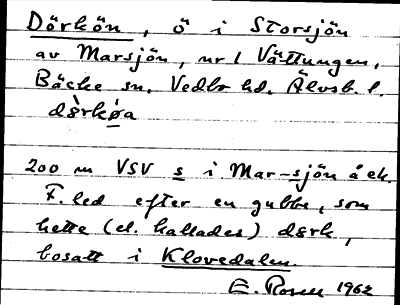 Dörkön, ö i Storsjön
av Marsjön, nr 1 Vättungen,
Bäcke sn. Vedbo hd. Älvsb. l.
dørkøa
200 m VSV s i Mar-sjön å ek.
F. led efter en gubbe, som
hette (el. kallades) dørk,
bosatt i Klovedalen.
E. 1962